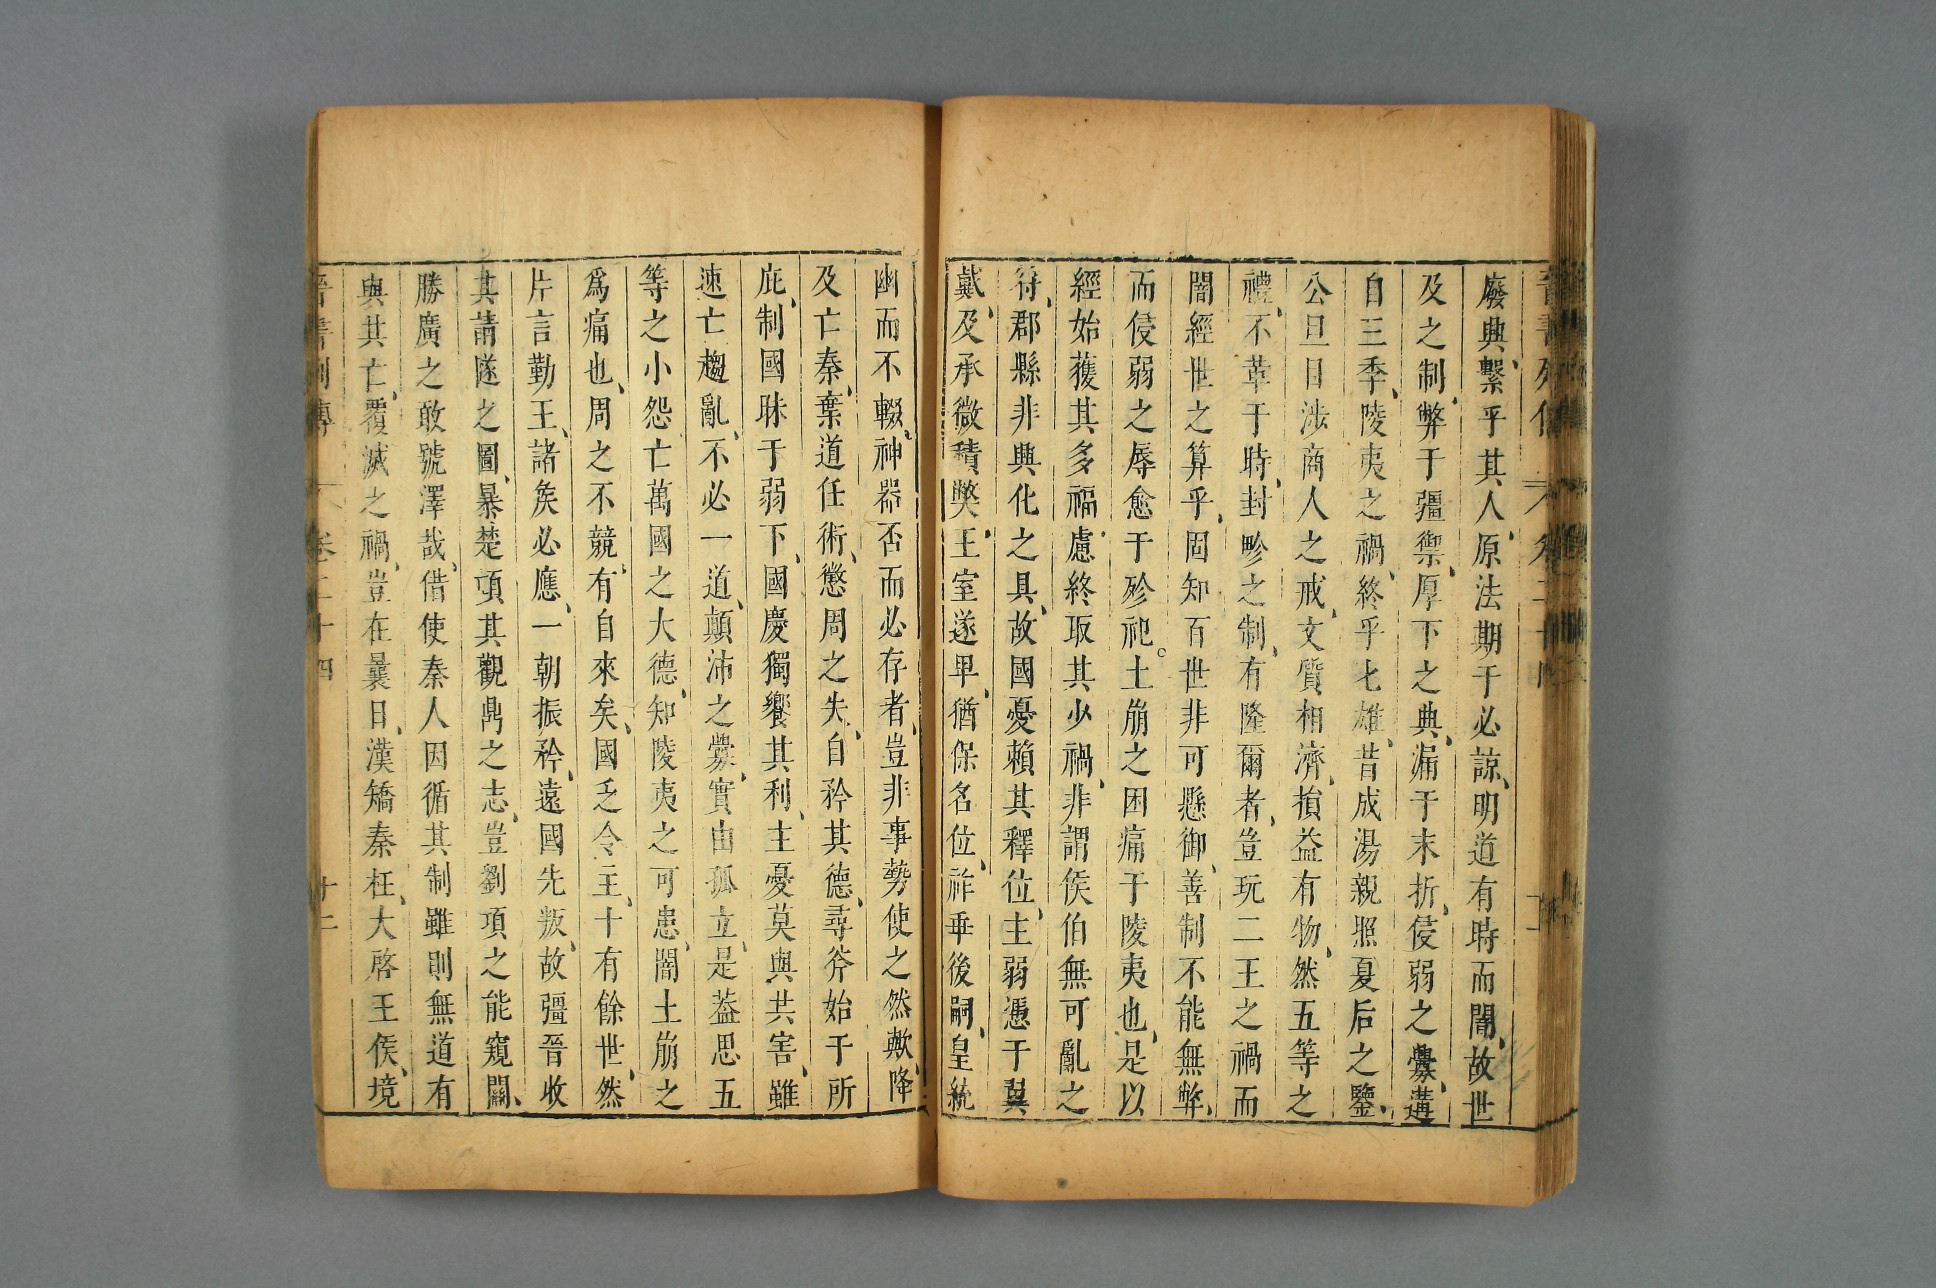 廢典、繫乎其人、原法期于必諒、明道有時而闇、故世
及之制、弊于疆禦、厚下之典、漏于末折、侵弱之釁、遘
自三季、陵夷之禍、終乎七雄、昔成湯親照夏后之鑒、
公旦目涉商人之戒、文質相濟、損益有物、然五等之
禮、不革于時、封畛之制、有隆爾者、豈玩二王之禍而
闇經世之算乎、固知百世非可懸御、善制不能無弊、
而侵弱之辱愈于殄祀。土崩之困痛于陵夷也、是以
經始獲其多福、慮終取其少禍、非謂侯伯無可亂之
符、郡縣非興化之具、故國憂賴其釋位、主弱憑于翼
戴、及承微積獘、王室遂卑、猶保名位、祚垂後嗣、皇統
幽而不輟、神器否而必存者、豈非事勢使之然歟、降
及亡秦、棄道任術、懲周之失、自矜其德、尋斧始于所
庇、制國昧于弱下、國慶獨饗其利、主憂莫與共害、雖
速亡趨亂、不必一道、顛沛之釁、實由孤立、是葢思五
等之小怨亡萬國之大德、知陵夷之可患、闇土崩之
爲痛也、周之不競、有自來矣、國乏令王、十有餘世、然
片言勤王、諸矦必應、一朝振矜、遠國先叛、故彊晉收
其請隧之圖、暴楚頊其觀鼎之志、豈劉項之能窺關、
勝廣之敢號澤哉、借使秦人因循其制雖則無道有
與共亡、覆滅之禍、豈在曩日、漢矯秦枉、大啓王侯、境
晉書列傳 卷二十四 十二